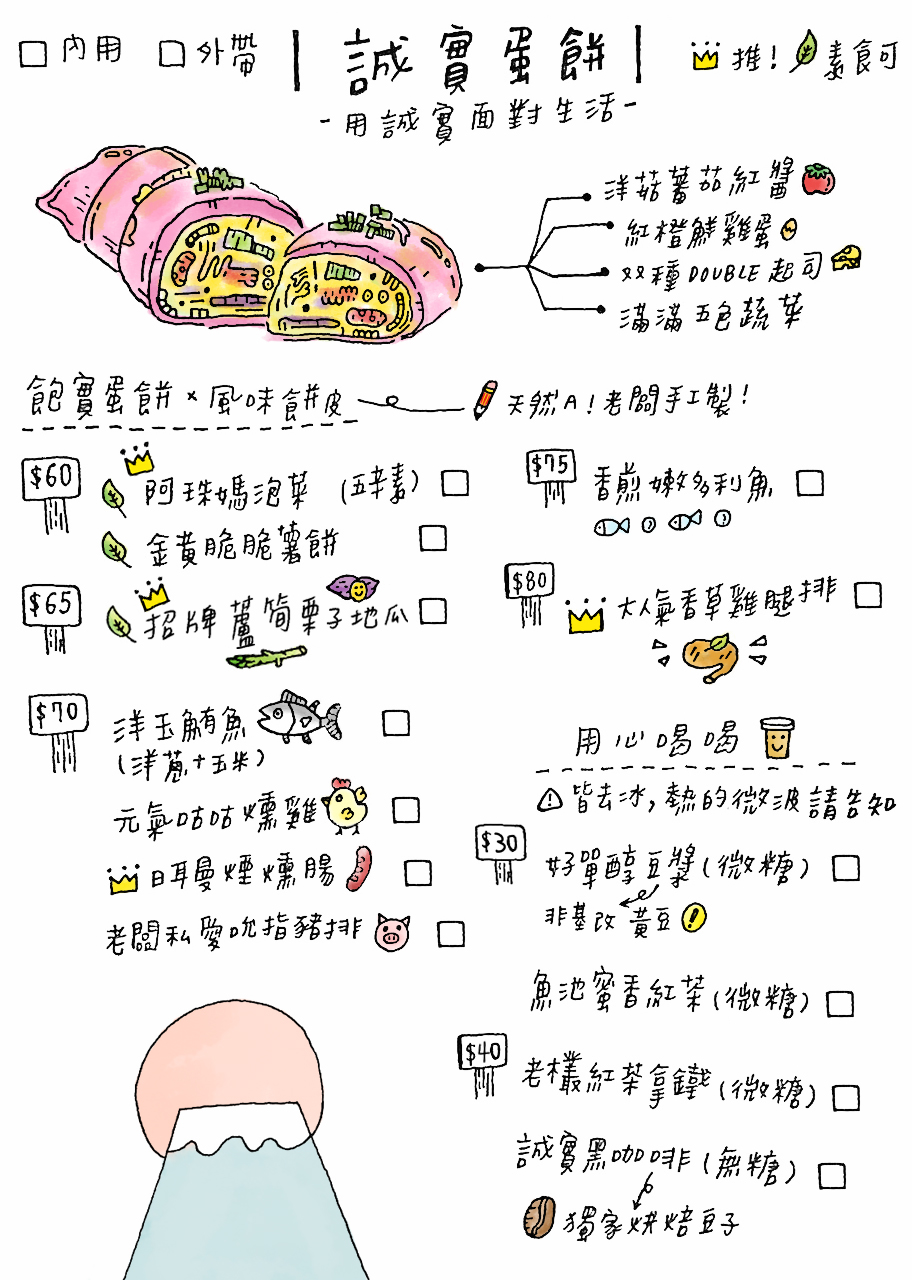 內用 外帶 誠實蛋餅 推! 素食可
-用誠實面對生活-
洋菇蕃茄紅醬
紅橙鮮雞蛋
双種DOUBLE起司
滿滿五色蔬菜
飽實蛋餅×風味餅皮
天然A!老闆手工製!
$60
阿珠媽泡菜 (五辛素)
金黃脆脆薯餅
$65
招牌蘆筍栗子地瓜
$70
洋玉鮪魚
(洋蔥+玉米)
元氣咕咕燻雞
日耳曼煙燻腸
老闆私愛吮指豬排
$75
香煎嫩多利魚
$80
大人氣香草雞腿排
用心喝喝
皆去冰,熱的微波請告知
$30
好單醇豆漿(微糖)
非基改黃豆
魚池蜜香紅茶(微糖)
$40
老欉紅茶拿鐵(微糖)
誠實黑咖啡(無糖)
獨家烘焙豆子